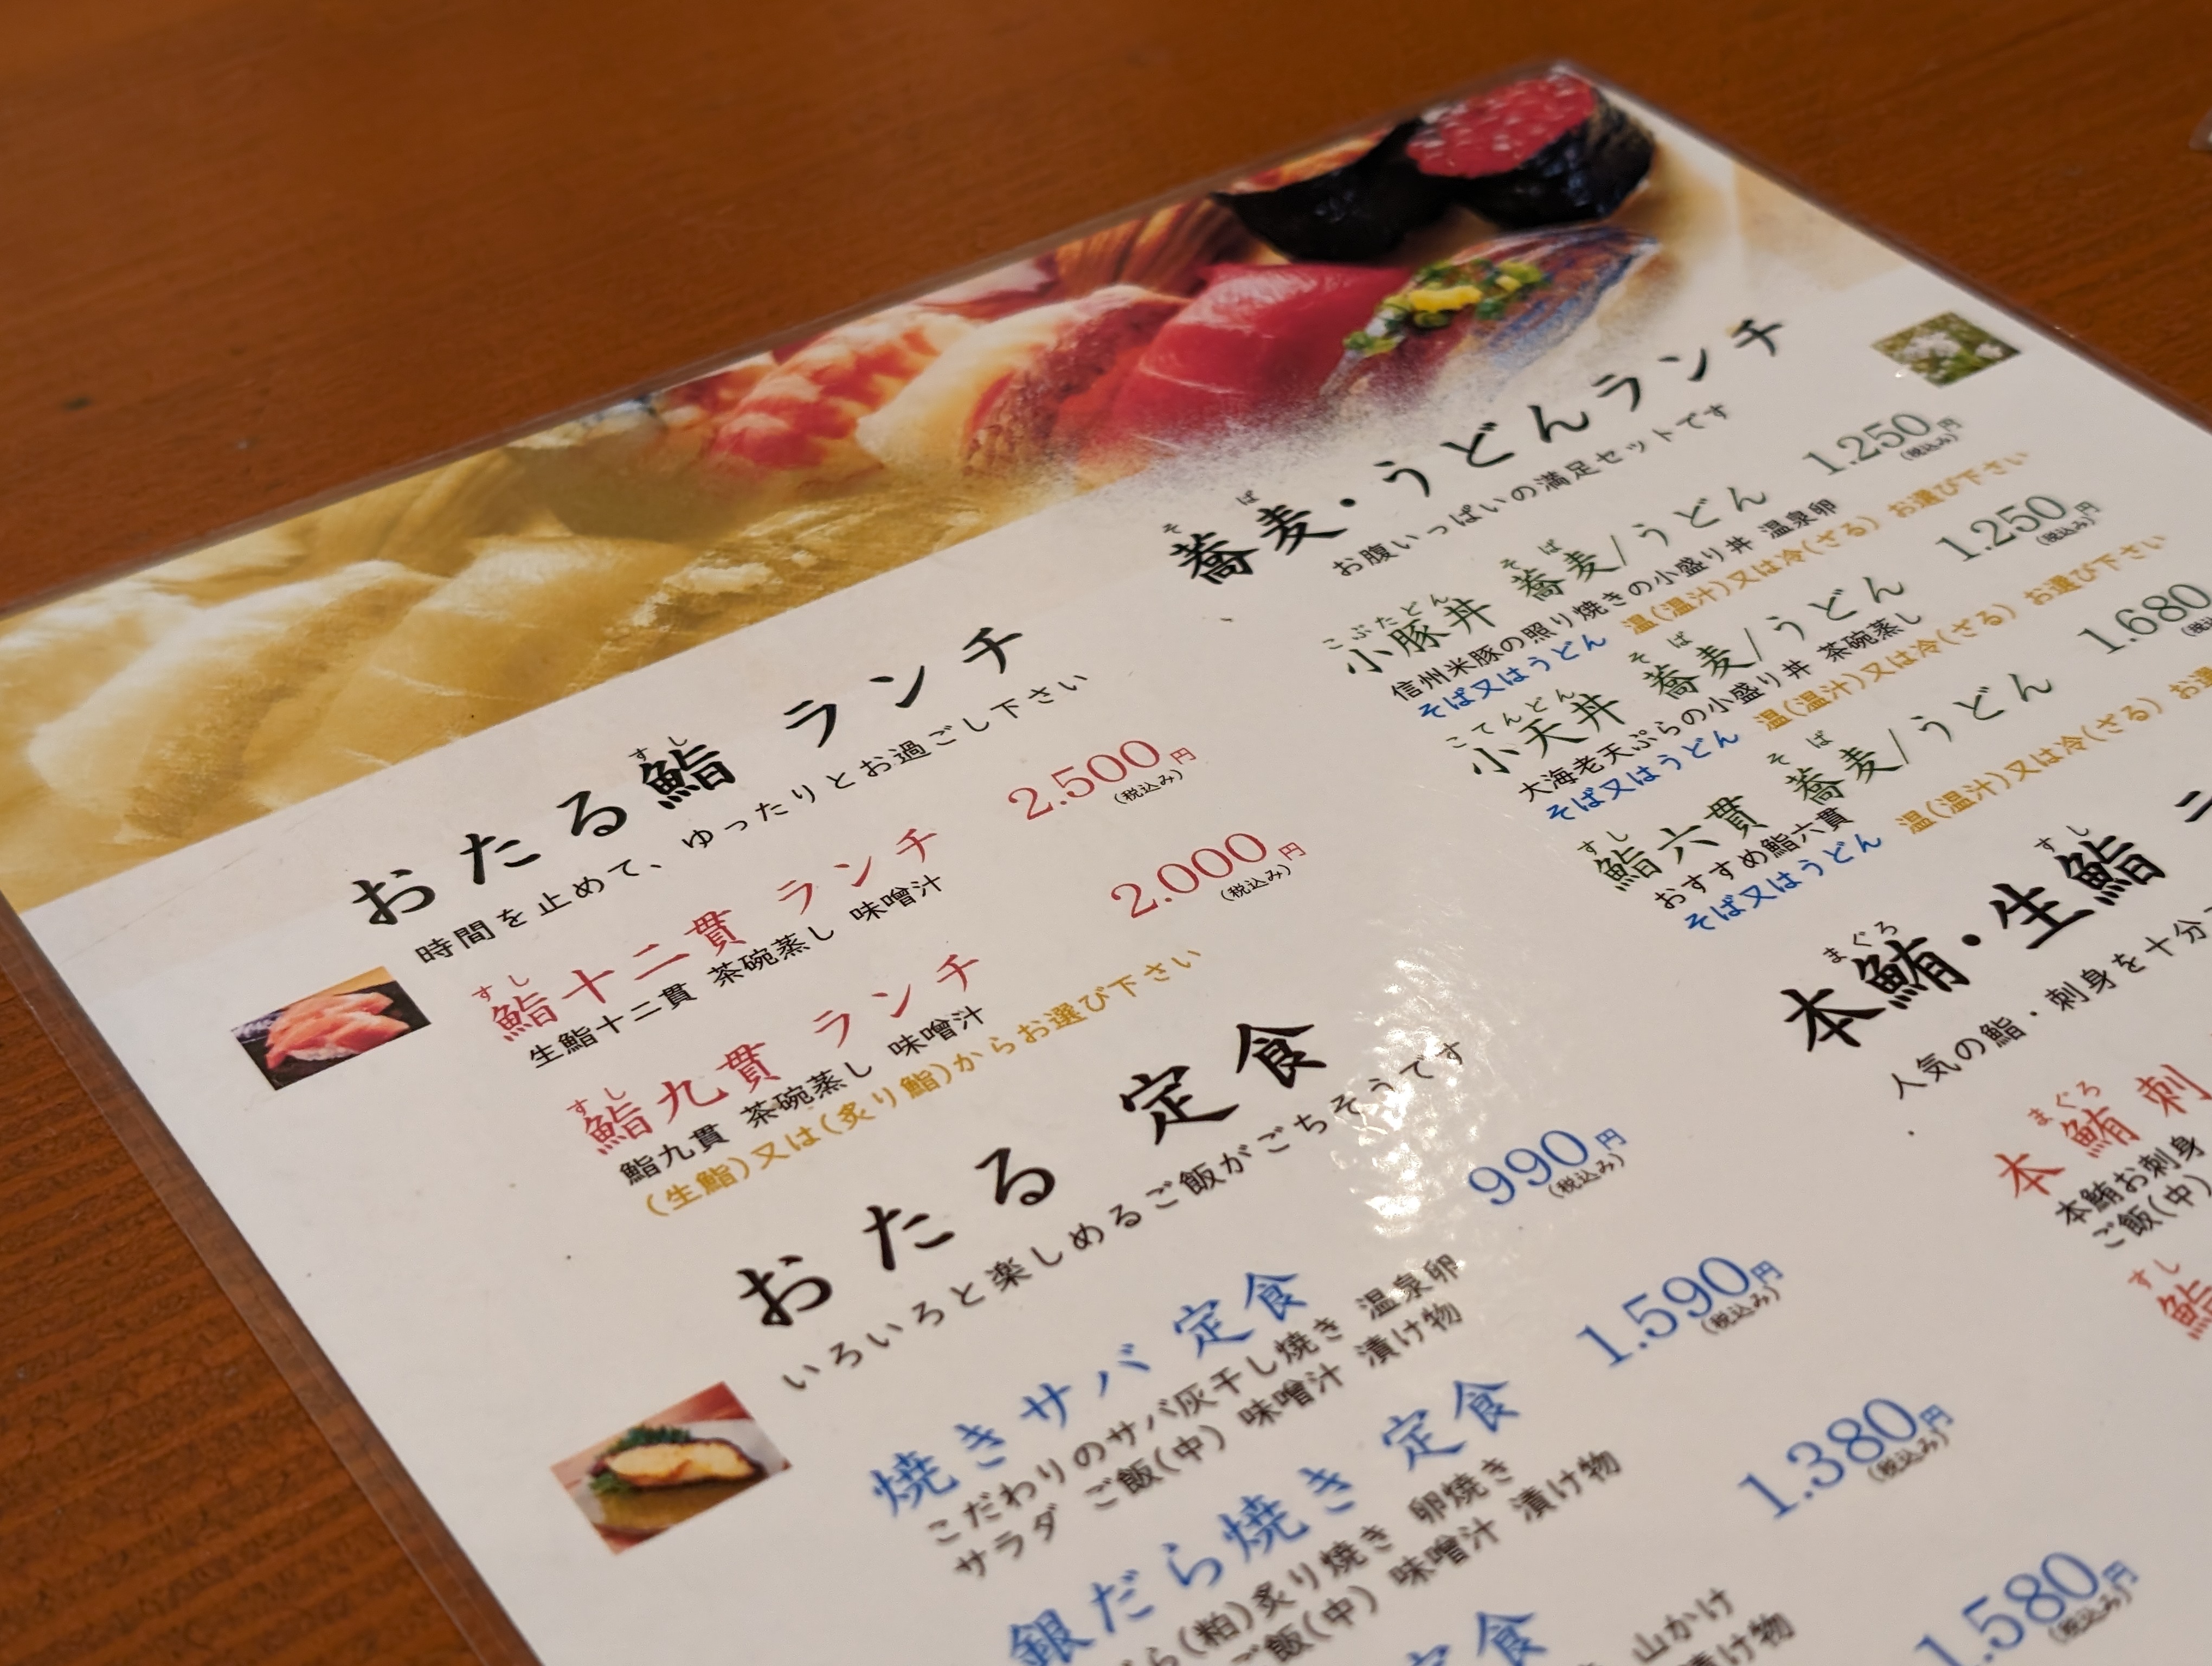 おたる鮨 ランチ
すし
時間を止めて、ゆったりとお過ごし下さい
すし
鮨十二貫 ランチ 2.500円
(税込み)
生鮨十二貫 茶碗蒸し 味噌汁
すし
鮨九貫 ランチ 2.000円
(税込み)
鮨九貫 茶碗蒸し 味噌汁
(生鮨)又は(炙り鮨)からお選び下さい
おたる 定食
いろいろと楽しめるご飯がごちそうです
焼きサバ 定食 990円
(税込み)
こだわりのサバ灰干し焼き 温泉卵
サラダ ご飯(中) 味噌汁 漬け物
銀だら焼き 定食 1.590円
(税込み)
ら(粕)炙り焼き 卵焼き
ご飯(中) 味噌汁 漬け物
定食 1.380円
(税込み)
山かけ
漬け物
1.580円
(税込み)
そば
蕎麦・うどんランチ
お腹いっぱいの満足セットです
こぶたどん そば
小豚丼 蕎麦/うどん 1.250円
(税込み)
信州米豚の照り焼きの小盛り丼 温泉卵
そば又はうどん 温(温汁)又は冷(ざる) お選び下さい
こてんどん そば
小天丼 蕎麦/うどん 1.250円
(税込み)
大海老天ぷらの小盛り丼 茶碗蒸し
そば又はうどん 温(温汁)又は冷(ざる) お選び下さい
すし そば
鮨六貫 蕎麦/うどん 1.680
おすすめ鮨六貫
そば又はうどん 温(温汁)又は冷(ざる) お選
まぐろ すし
本鮪・生鮨
人気の鮨・刺身を十分
まぐろ
本鮪刺
本鮪お刺身
ご飯(中)
すし
鮨